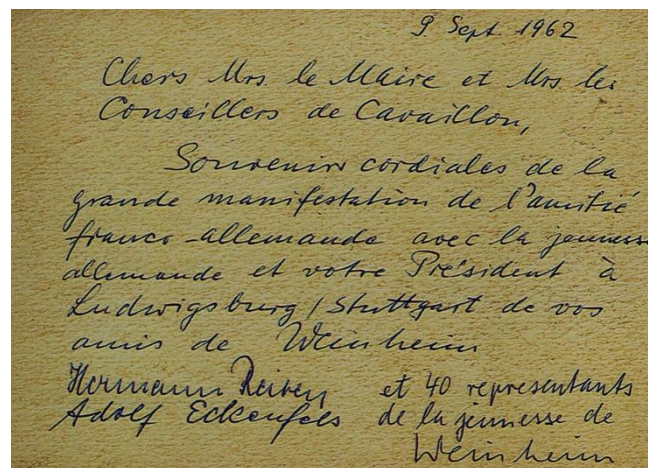 9. Sept. 1962
Chers Mrs le Maire et Mrs les
Conseillers de Cavaillon,
Souvenirs cordiales de la
grande manifestation de l'amitié
franco-allemande avec la jeunesse
allemande et votre Président à
Ludwigsburg / Stuttgart de vos
amis de Weinheim
Hermann et 40 representants
Adolf Eckenfels de la jeunesse de
Weinheim